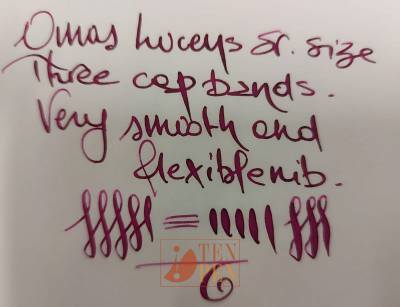 Omas Lucens Sr. size
Three cap bands.
Very smooth and
flexible nib.
TEN
PEN